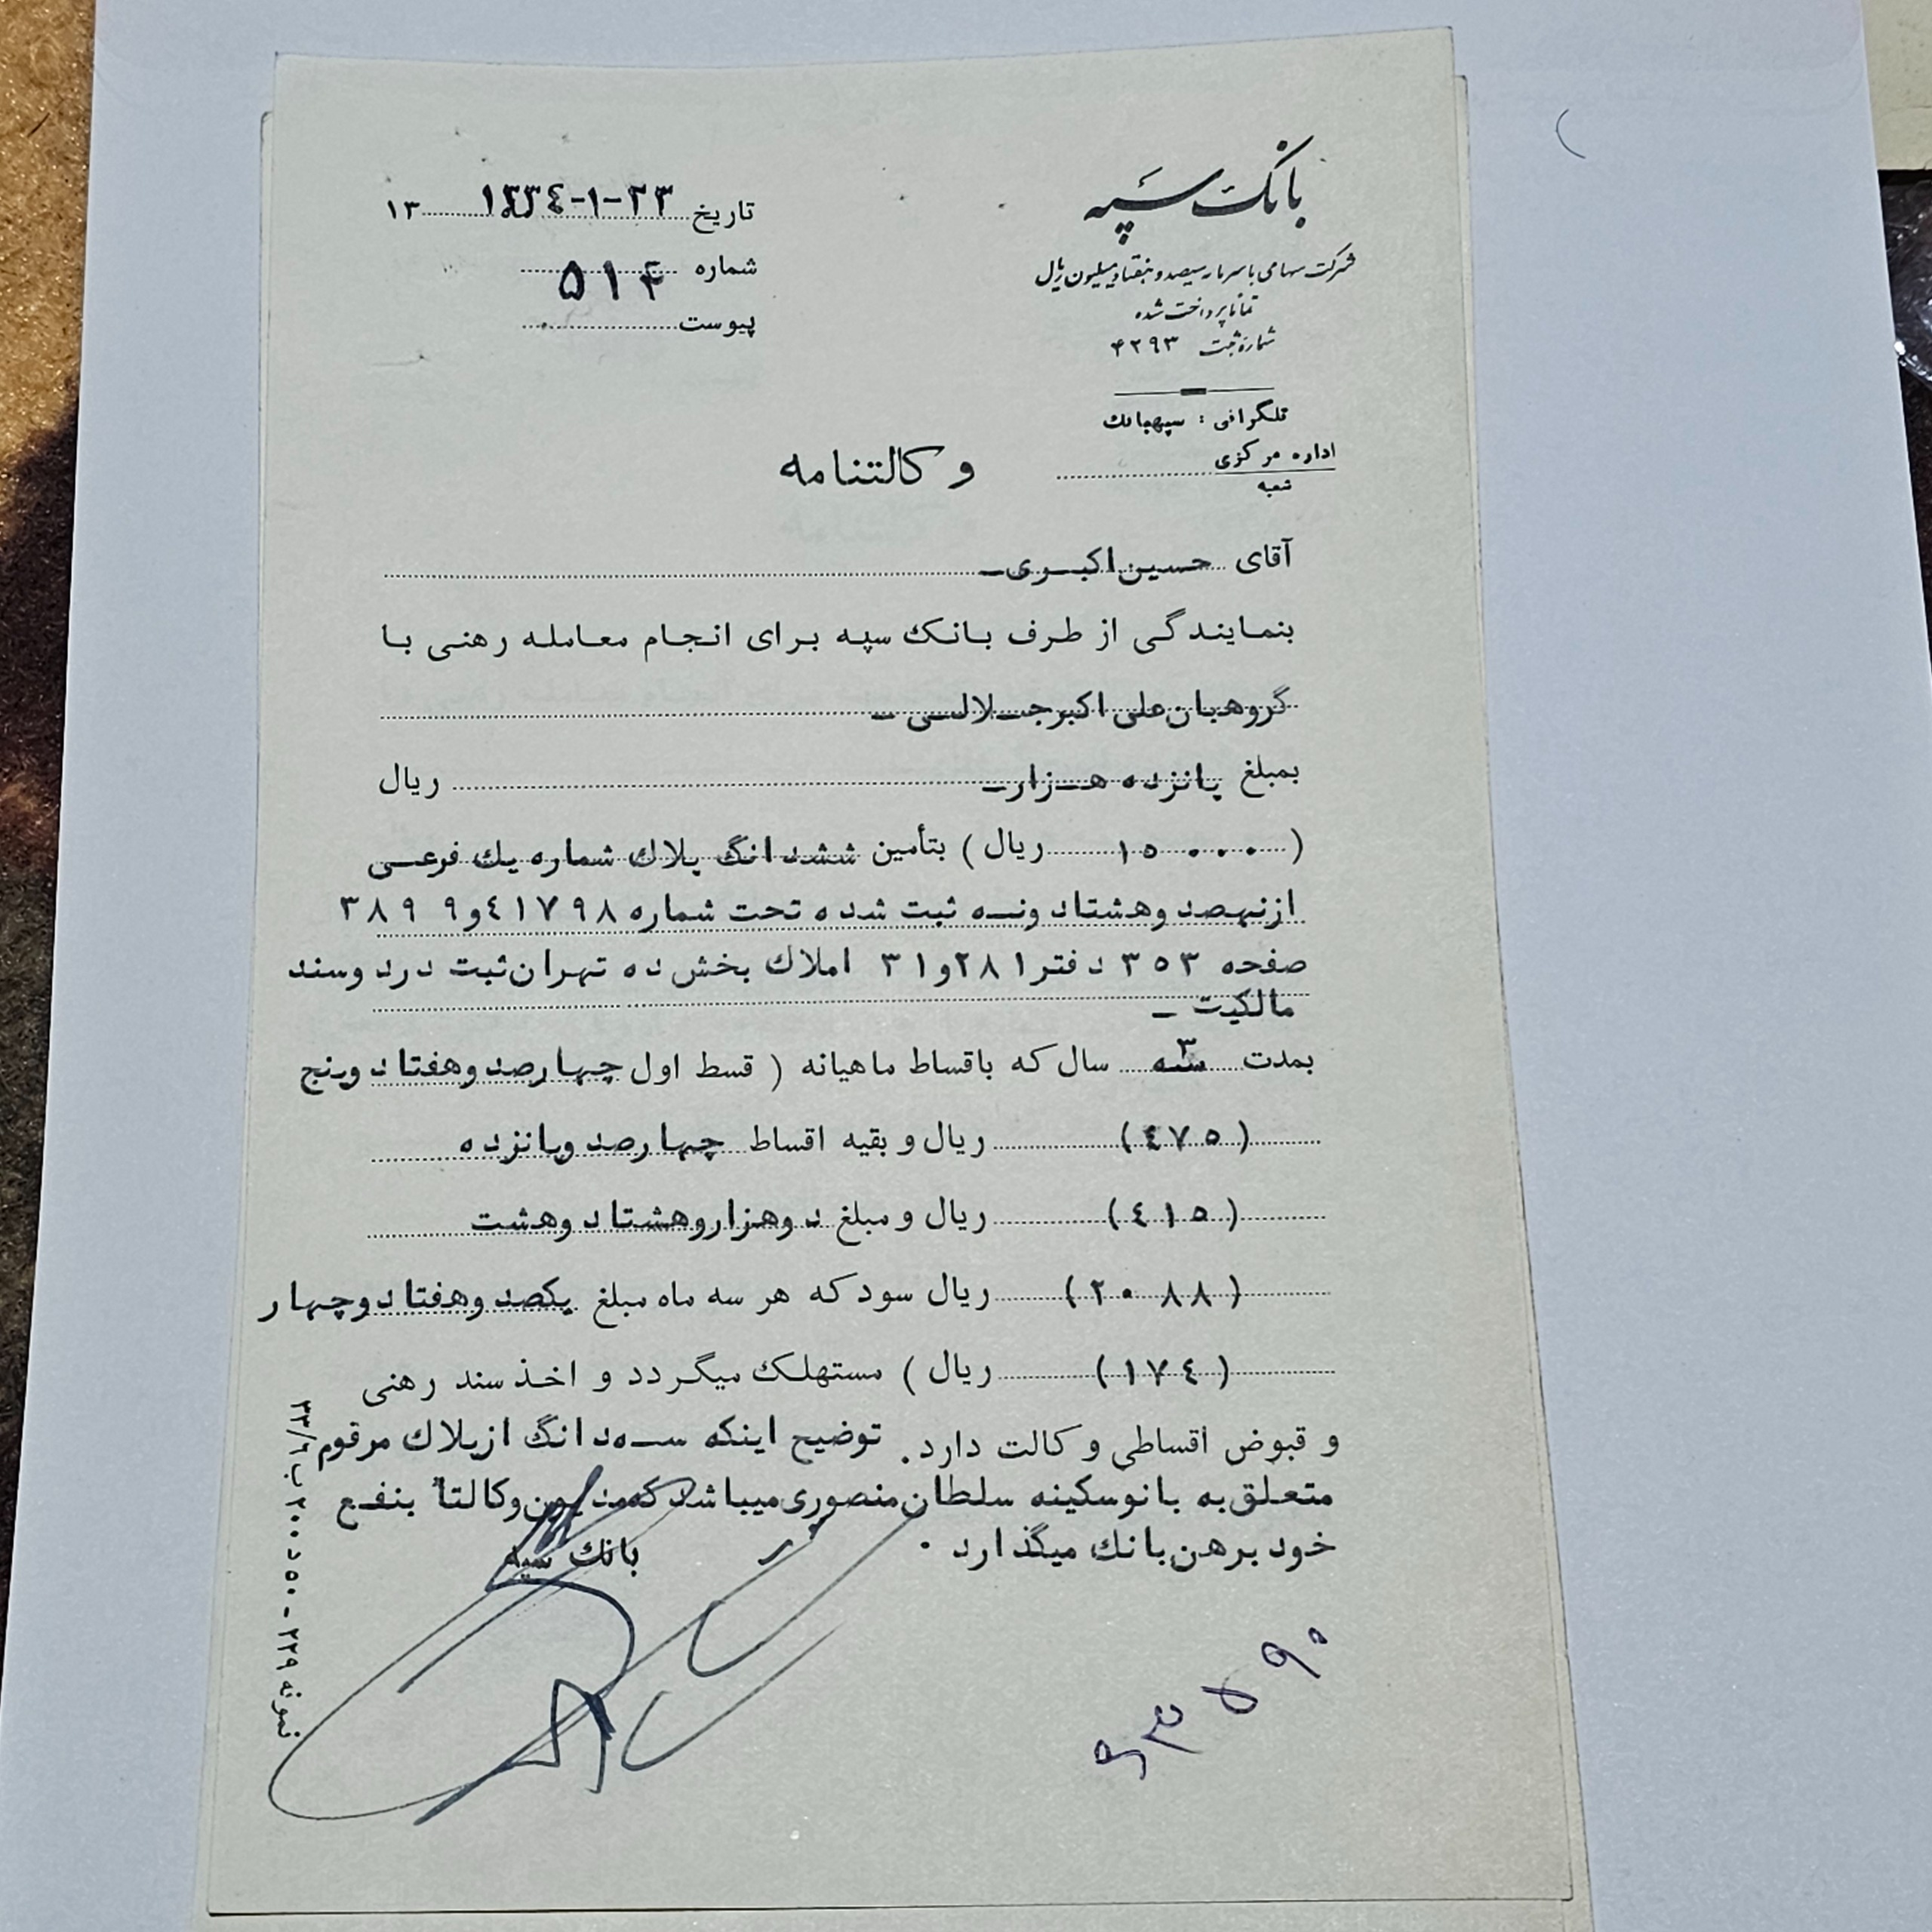 بانک سپه
شرکت سهامی با سرمایه سیصد و هفتاد میلیون ریال
تماماً پرداخت شده
شماره ثبت ۴۲۹۳
تلگرافی : سپهبانك
اداره مرکزی
شعبه
تاریخ ۲۳-۱-۱۳۳٤ ۱۳
شماره ۵۱٤
پیوست
وکالتنامه
آقای حسین اکبری
بنمایندگی از طرف بانک سپه برای انجام معامله رهنی با
گروهبان علی اکبر جلالی
بمبلغ پانزده هزار ریال
( ۱۵۰۰۰ ریال ) بتأمین ششدانگ پلاك شماره يك فرعی
از نهصد و هشتاد و نه ثبت شده تحت شماره ٤۱۷۹۸ و ۳۸۹۹
صفحه ۳۵۳ دفتر ۲۸۱ و ۳۱ املاك بخش ده تهران ثبت در دو سند
مالکیت
بمدت سه ۳ سال که باقساط ماهیانه ( قسط اول چهارصد و هفتاد و پنج
(٤۷۵) ریال و بقیه اقساط چهارصد و پانزده
(٤۱۵) ریال و مبلغ دو هزار و هشتاد و هشت
(۲۰۸۸) ریال سود که هر سه ماه مبلغ یکصد و هفتاد و چهار
(۱۷٤) ریال ) مستهلک میگردد و اخذ سند رهنی
و قبوض اقساطی وکالت دارد. توضیح اینکه سه دانگ از پلاك مرقوم
متعلق به بانو سکینه سلطان منصوری میباشد که مدیون وکالتاً بنفع
خود برهن بانك میگذارد .
بانك سپه